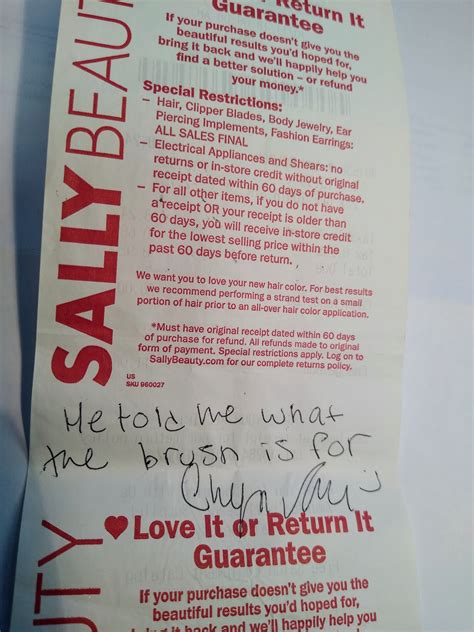 Love It or Return It
Guarantee
If your purchase doesn't give you the
beautiful results you'd hoped for,
bring it back and we'll happily help you
find a better solution – or refund
your money.*
Special Restrictions:
– Hair, Clipper Blades, Body Jewelry, Ear
Piercing Implements, Fashion Earrings:
ALL SALES FINAL
– Electrical Appliances and Shears: no
returns or in-store credit without original
receipt dated within 60 days of purchase.
– For all other items, if you do not have
a receipt OR your receipt is older than
60 days, you will receive in-store credit
for the lowest selling price within the
past 60 days before return.
We want you to love your new hair color. For best results
we recommend performing a strand test on a small
portion of hair prior to an all-over hair color application.
*Must have original receipt dated within 60 days
of purchase for refund. All refunds made to original
form of payment. Special restrictions apply. Log on to
SallyBeauty.com for our complete returns policy.
US
SKU 960027
SALLY BEAUT
He told me what
the brysh is for
UTY
Love It or Return It
Guarantee
If your purchase doesn't give you the
beautiful results you'd hoped for,
bring it back and we'll happily help you